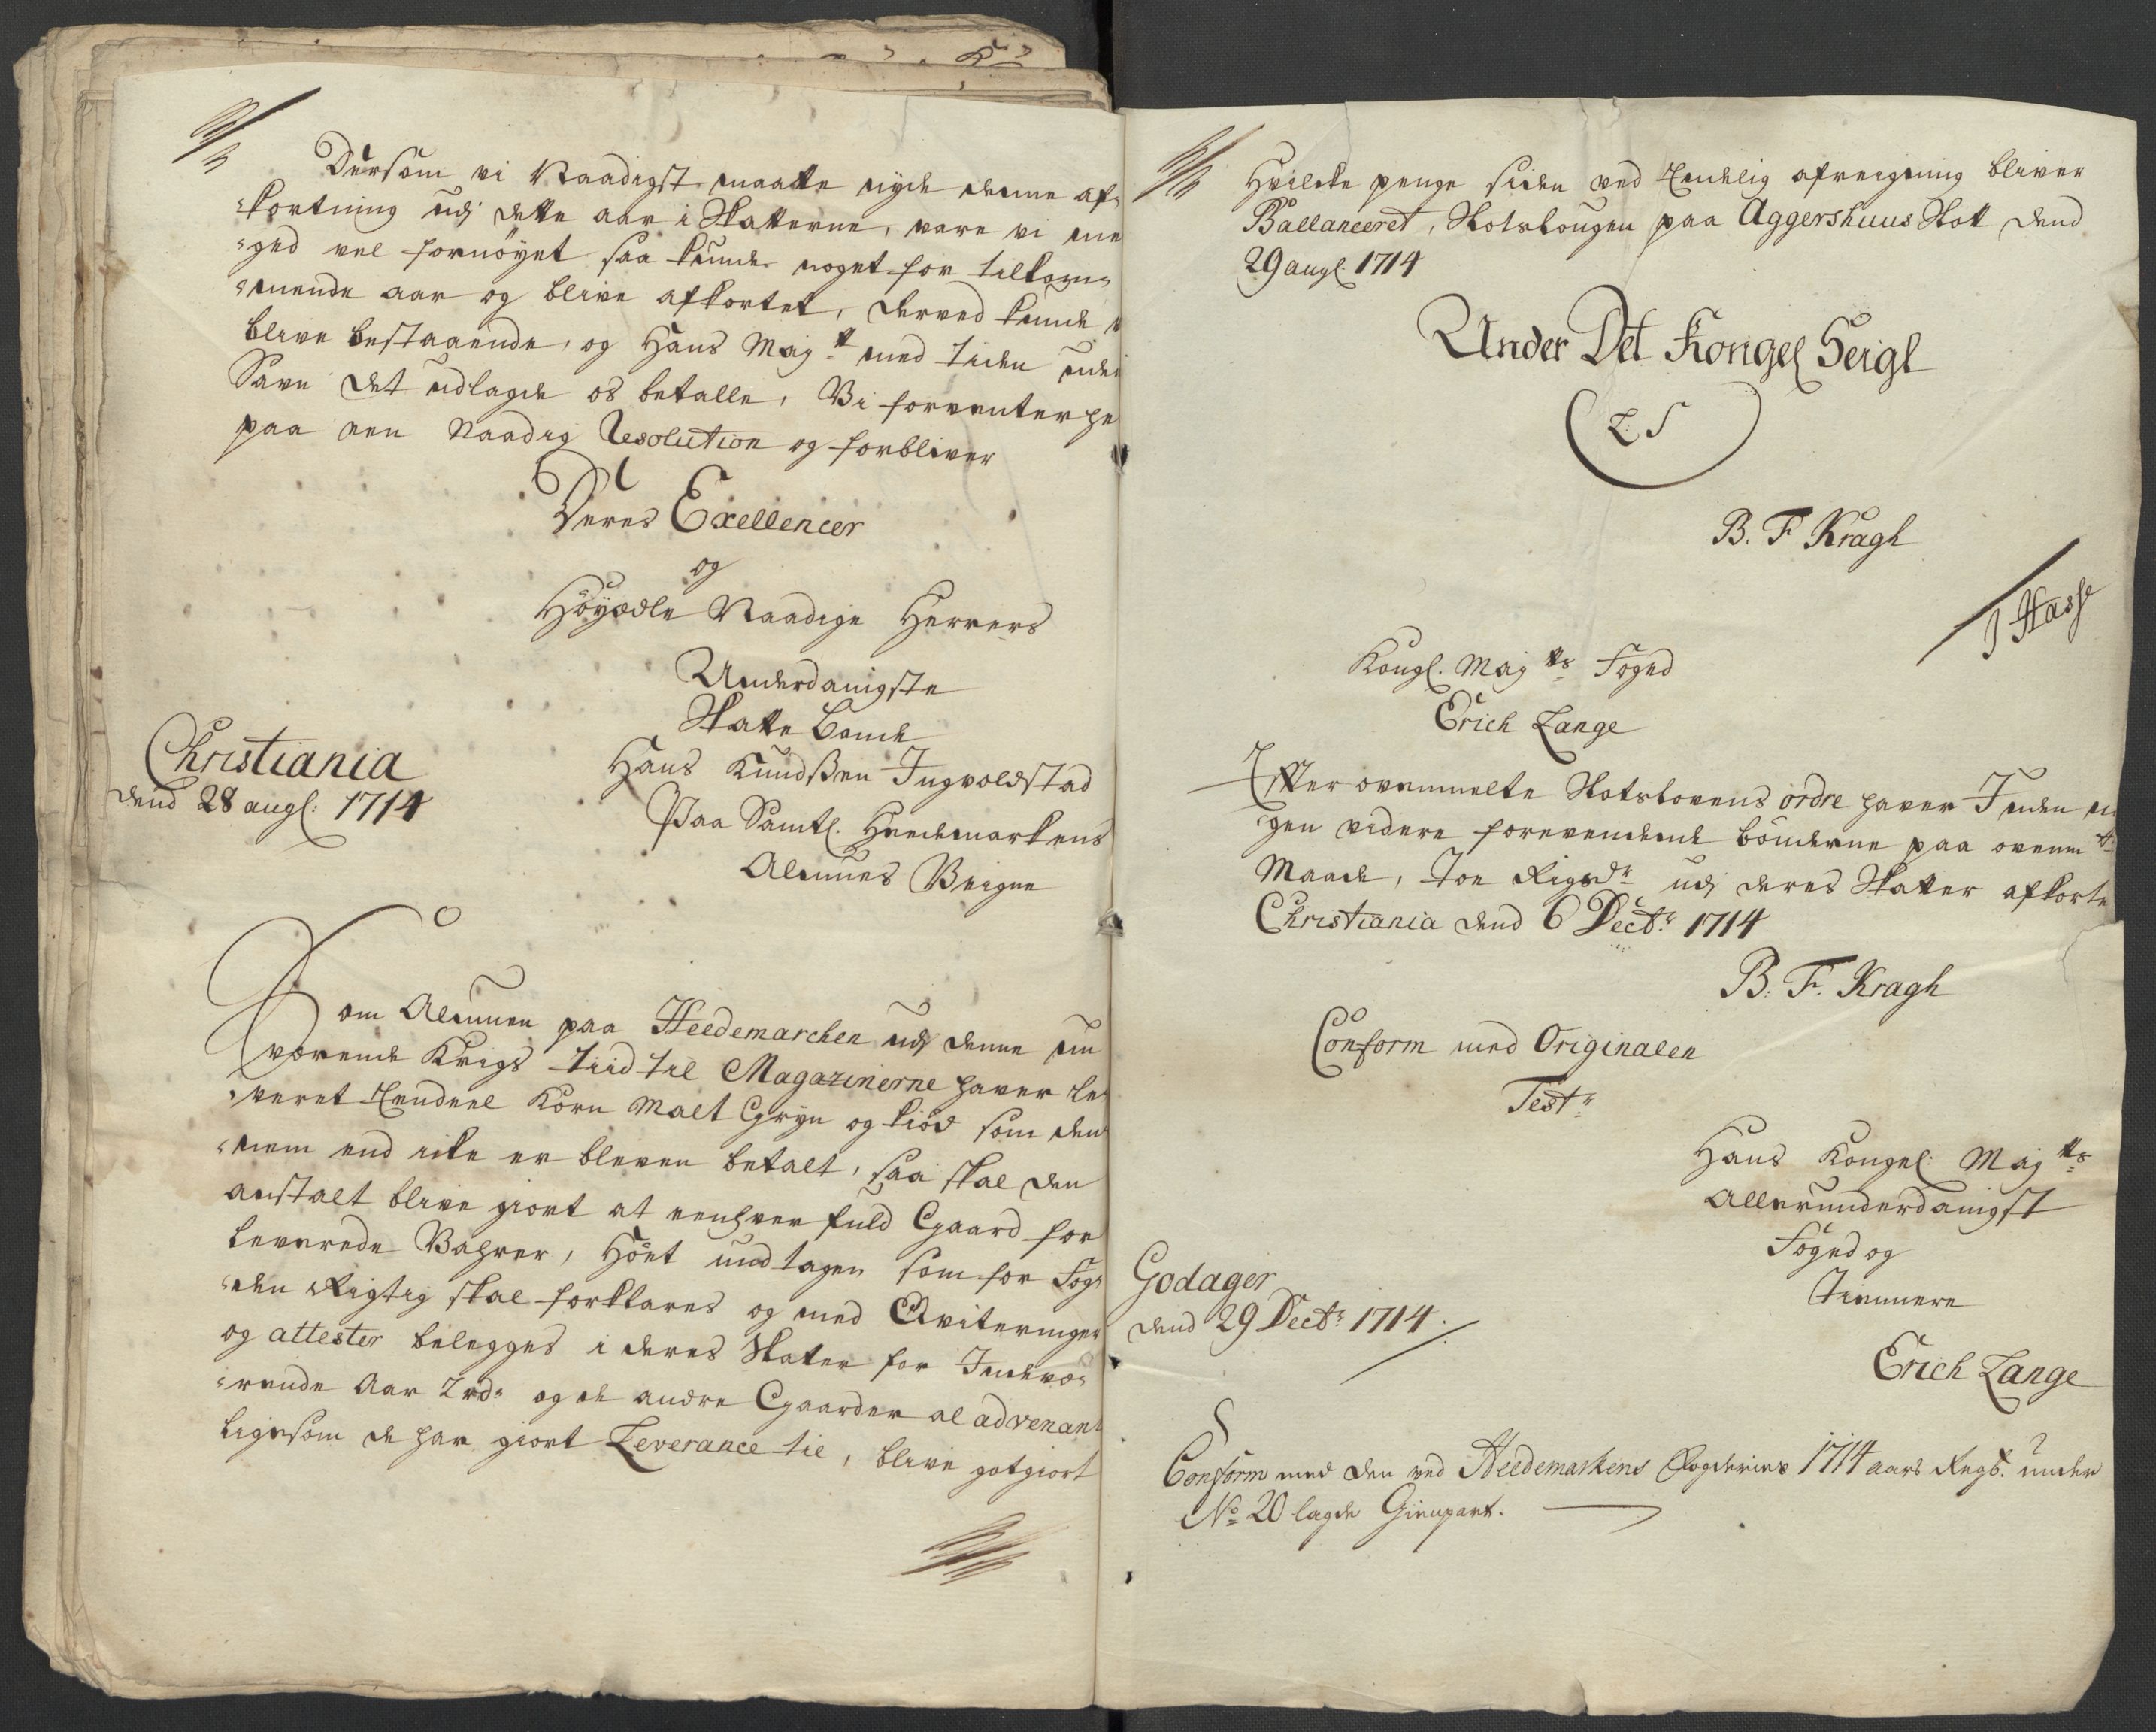 Dersom vi Naadigst maatte nyde denne af-
-kortning udj dette aar i Skatterne, vare vi me
-ged vel fornöyet saa kunde noget for tilkom-
-mende aar og blive afkortet, derved kunde
blive bestaaende, og Hans Maytt med tiden uden
Savn det udlagde os betalle, Vi forventer he
paa een Naadig Resolution og forbliver
Deres Exellencer
og
Höyædle Naadige Herrers
Underdanigste
Skatte Bonde
Hans Knudsßen Ingvoldstad
Paa Samtl. Heedemarkens
Almues Veigne
Christiania
dend 28 augl: 1714
Som Almuen paa Heedemarchen udj denne nu
værende Krigs tiid til Magazinerne haver le-
-veret Een deel Korn Malt Gryn og kiöd som den-
-nem end icke er bleven betalt, saa skal den
anstalt blive giort at eenhver fuld Gaard for
Leverede Vahrer, Höet undtagen som for Fog-
-den Rigtig skal forklares og med Qviteringer
og attester belegges i deres Skatter for Indevæ-
-rende Aar 2 rdr og de andre Gaarder al advenant
ligesom de har giort Leverance til, blive gotgiort
Hvilcke penge siden ved Endelig afreigning bliver
Ballanceret, Slotslougen paa Aggershuus Slott dend
29 augl. 1714
Under Det Kongel Seigl
L. S
B. F Kragh
J Hass
Kongl. Maytts Foged
Erich Lange
Efter ovenmelte Slotslovens ordre haver Inden
-gen videre forevendende bönderne paa ovenmte
Maade, Toe Rigsdr udj deres Skatter afkorte
Christiania dend 6 Dectr 1714
B. F. Kragh
Conform med Originalen
Testr
Hans Kongel: Maytts
Allerunderdanigst
Foged og
Tiennere
Godager
dend 29 Dectr 1714.
Erich Lange
Conform med den ved Heedemarkens Fogderies 1714 aars Regs. under
No 20 lagde Gienpart.